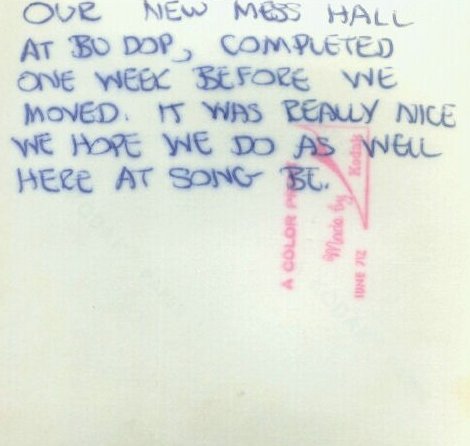 OUR NEW MESS HALL
AT BU DOP, COMPLETED
ONE WEEK BEFORE WE
MOVED. IT WAS REALLY NICE
WE HOPE WE DO AS WELL
HERE AT SONG BE.
A COLOR
Made by
Kodak
JUNE 72